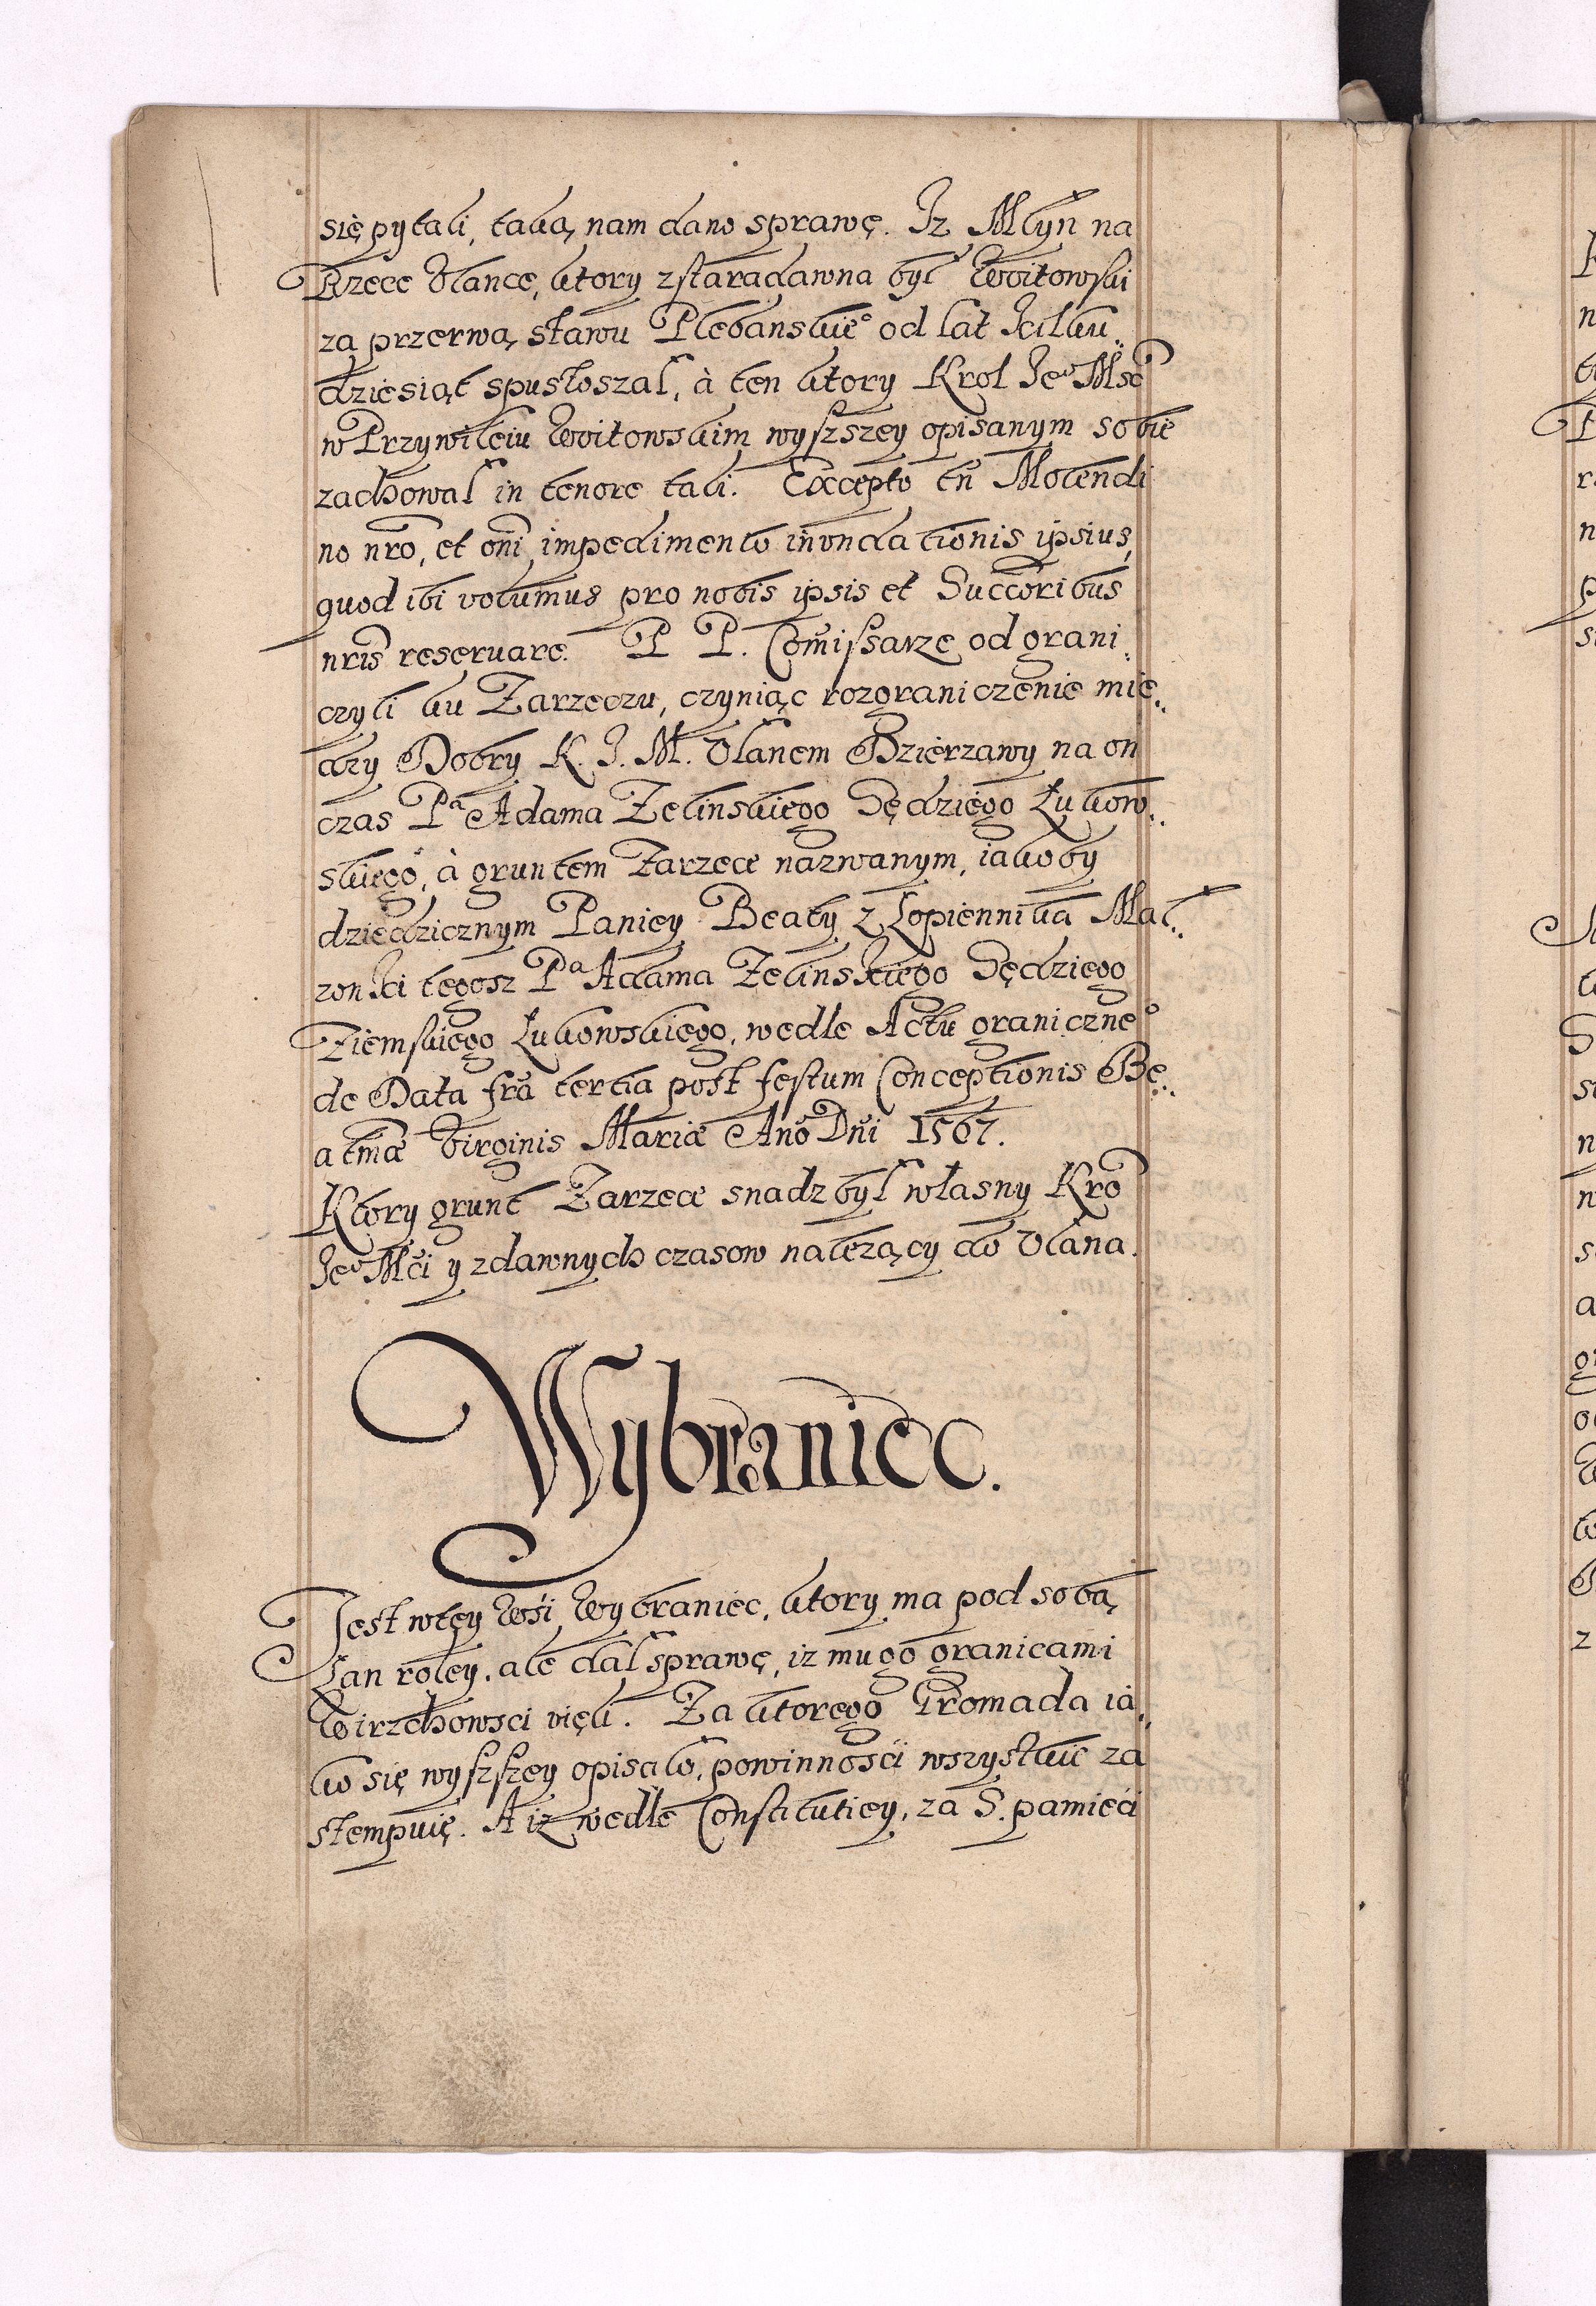 się pytali, taką nam dano sprawę. Iz Młyn na
Rzece Vlance, ktory zstaradawna był Woitowski
za przerwą stawu Plebanskie° od lat kilku„
dziesiąt spustoszał, à ten ktory Krol Ieo Msć
w Przywileiu Woitowskim wyszszey opisanym sobie
zachował in tenore tali. Excepto tn̄ Molendi
no nrō, et om̄i impedimento inundationis ipsius,
quod ibi volumus pro nobis ipsis et Succoribus
nris reseruare. P P. Comissarze od grani„
czyli ku Zarzeczu, czyniąc rozgraniczenie mię„
dzy Dobry K. I. M. Vlanem Dzierzawy na on
czas Pᵃ Adama Zelinskiego Sędziego Łukow„
skiego, à gruntem Zarzece nazwanym, iakoby
dziedzicznym Paniey Beaty z Łopiennika Mał„
zonki tegosz Pᵃ Adama Zelinskiego Sędziego
Ziemskiego Łukowskiego, wedle Actu graniczne°
de Data fra tertia post festum Conceptionis Be„
atmæ Virginis Mariæ Ano Dni 1567.
Ktory grunt Zarzece snadz był własny Kro
Ieo Mci y zdawnych czasow nalezący do Vlana.
Wybraniec.
Iest wtey Wsi Wybraniec, ktory ma pod sobą
Łan roley, ale dał sprawę, iz mu go granicami
Wirzchowsci vięli. Za ktorego Gromada ia„
ko się wyszszey opisało, powinnosci wszystkie za
stempuię. A iz wedle Constitutiey, za S. pamieci